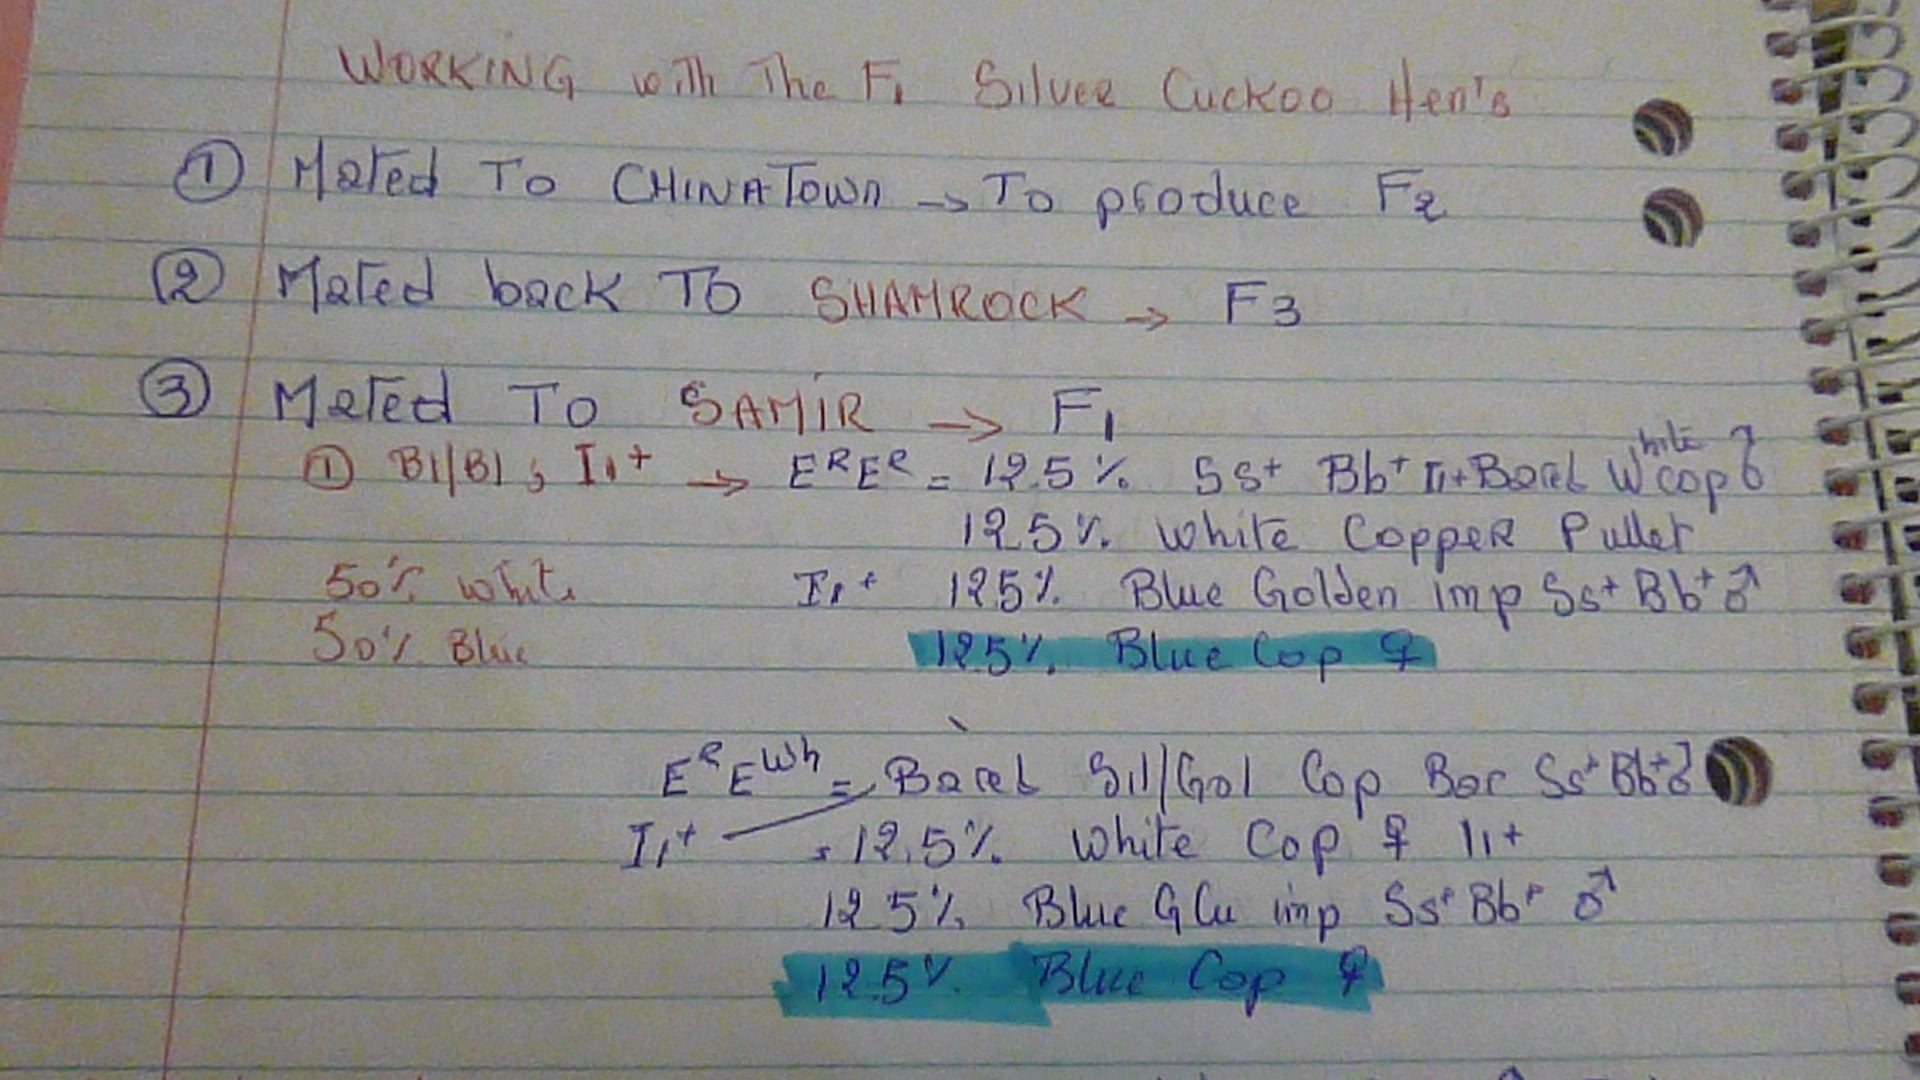 WORKING with The F1 Silver Cuckoo Hen's
① Mated To CHINATOWN → To produce F2
② Mated back TO SHAMROCK → F3
③ Mated To SAMIR → F1
① Bl/Bl ; I i+ → E^R E^R = 12.5% Ss+ Bb+ Ii+ Barel White cop ♂
12.5% White Copper Pullet
50% White I i+ 12.5% Blue Golden imp Ss+ Bb+ ♂
50% Blue 12.5% Blue Cop ♀
E^R E^Wh = Barel Sil/Gol Cop Bar Ss+ Bb+ ♂
I i+ = 12.5% White Cop ♀ Ii+
12.5% Blue G Cu imp Ss+ Bb+ ♂
12.5% Blue Cop ♀